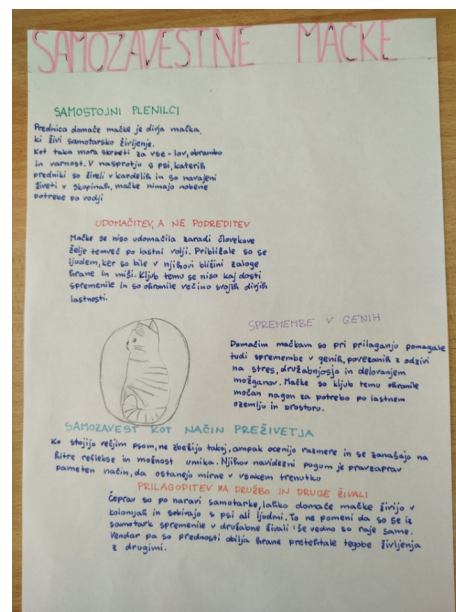 SAMOZAVESTNE MAČKE
SAMOSTOJNI PLENILCI
Prednica domače mačke je divja mačka,
ki živi samotarsko življenje.
Kot taka mora skrbeti za vse - lov, obrambo
in varnost. V nasprotju s psi, katerih
predniki so živeli v krdelih in so navajeni
živeti v skupinah, mačke nimajo nobene
potrebe po vodji
UDOMAČITEV, A NE PODREDITEV
Mačke se niso udomačila zaradi človekove
želje temveč po lastni volji. Približale so se
ljudem, ker so bile v njihovi bližini zaloge
hrane in miši. Kljub temu se niso kaj dosti
spremenile in so ohranile večino svojih divjih
lastnosti.
SPREMEMBE V GENIH
Domačim mačkam so pri prilaganju pomagale
tudi spremembe v genih, povezanih z odzivi
na stres, družabnjosjo in delovanjem
možganov. Mačke so kljub temu ohranile
močan nagon za potrebo po lastnem
ozemlju in prostoru.
SAMOZAVEST KOT NAČIN PREŽIVETJA
Ko stojijo večjim psom, ne zbežijo takoj, ampak ocenijo razmere in se zanašajo na
hitre reflekse in možnost umika. Njihov navidezni pogum je pravzaprav
pameten način, da ostanejo mirne v vsakem trenutku
PRILAGODITEV NA DRUŽBO IN DRUGE ŽIVALI
Čeprav so po naravi samotarke, lahko domače mačke živijo v
kolonijah in sobivajo s psi ali ljudmi. To ne pomeni da so se iz
samotark spremenile v družabne živali še vedno so raje same.
Vendar pa so prednosti obilja hrane pretehtale tegobe življenja
z drugimi.